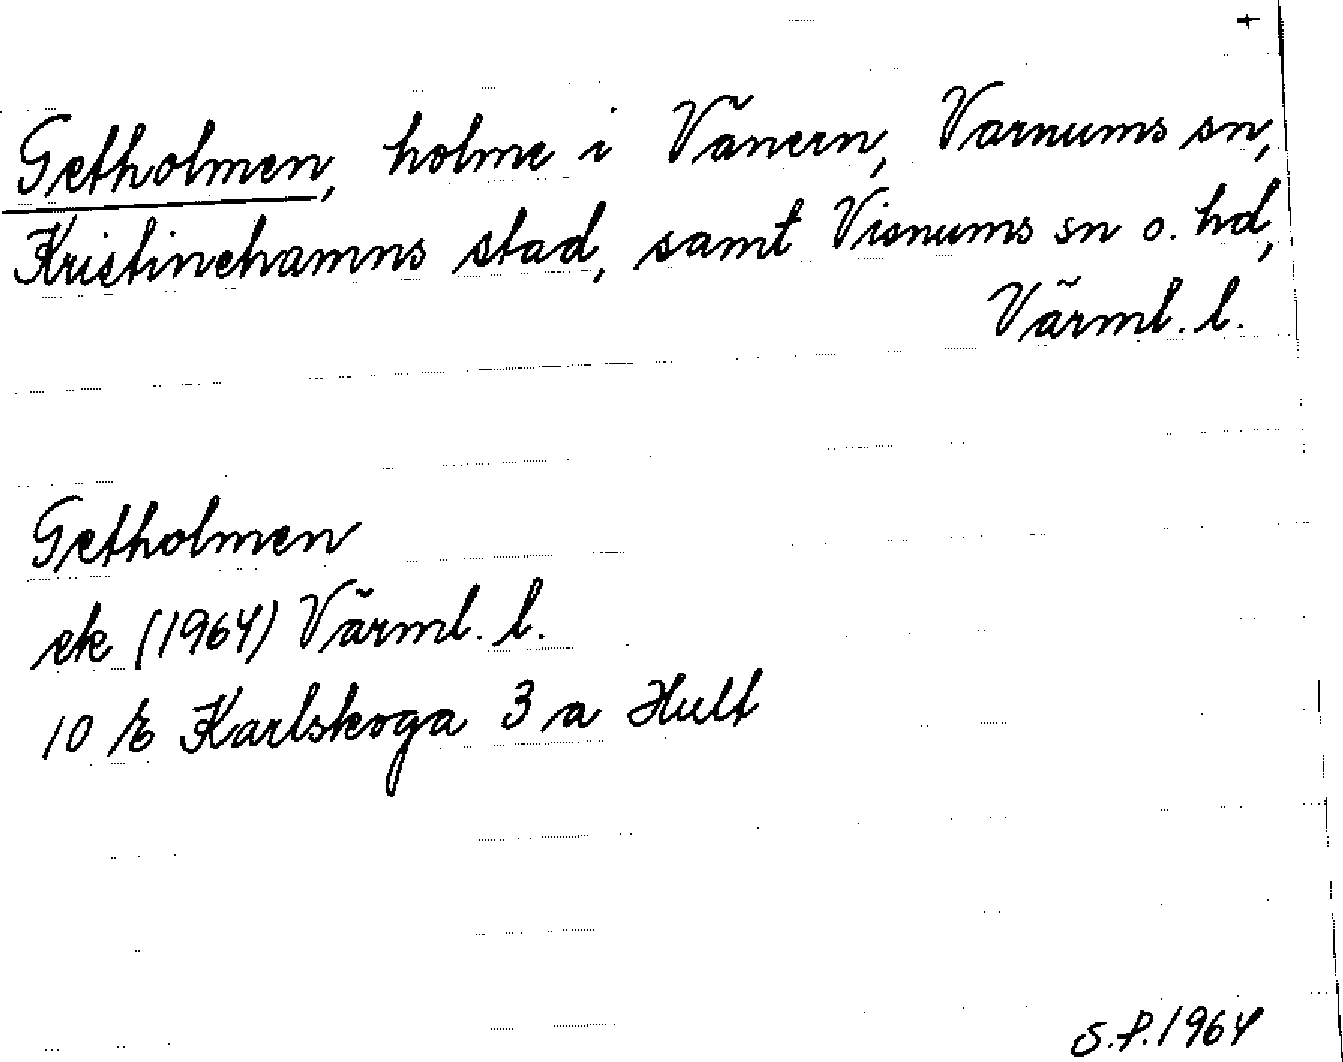 +
Getholmen, holme i Vänern, Varnums sn,
Kristinehamns stad, samt Visnums sn o. hd,
Värml. l.
Getholmen
ek (1964) Värml. l.
10 E Karlskoga 3 a Hult
S.P.1964